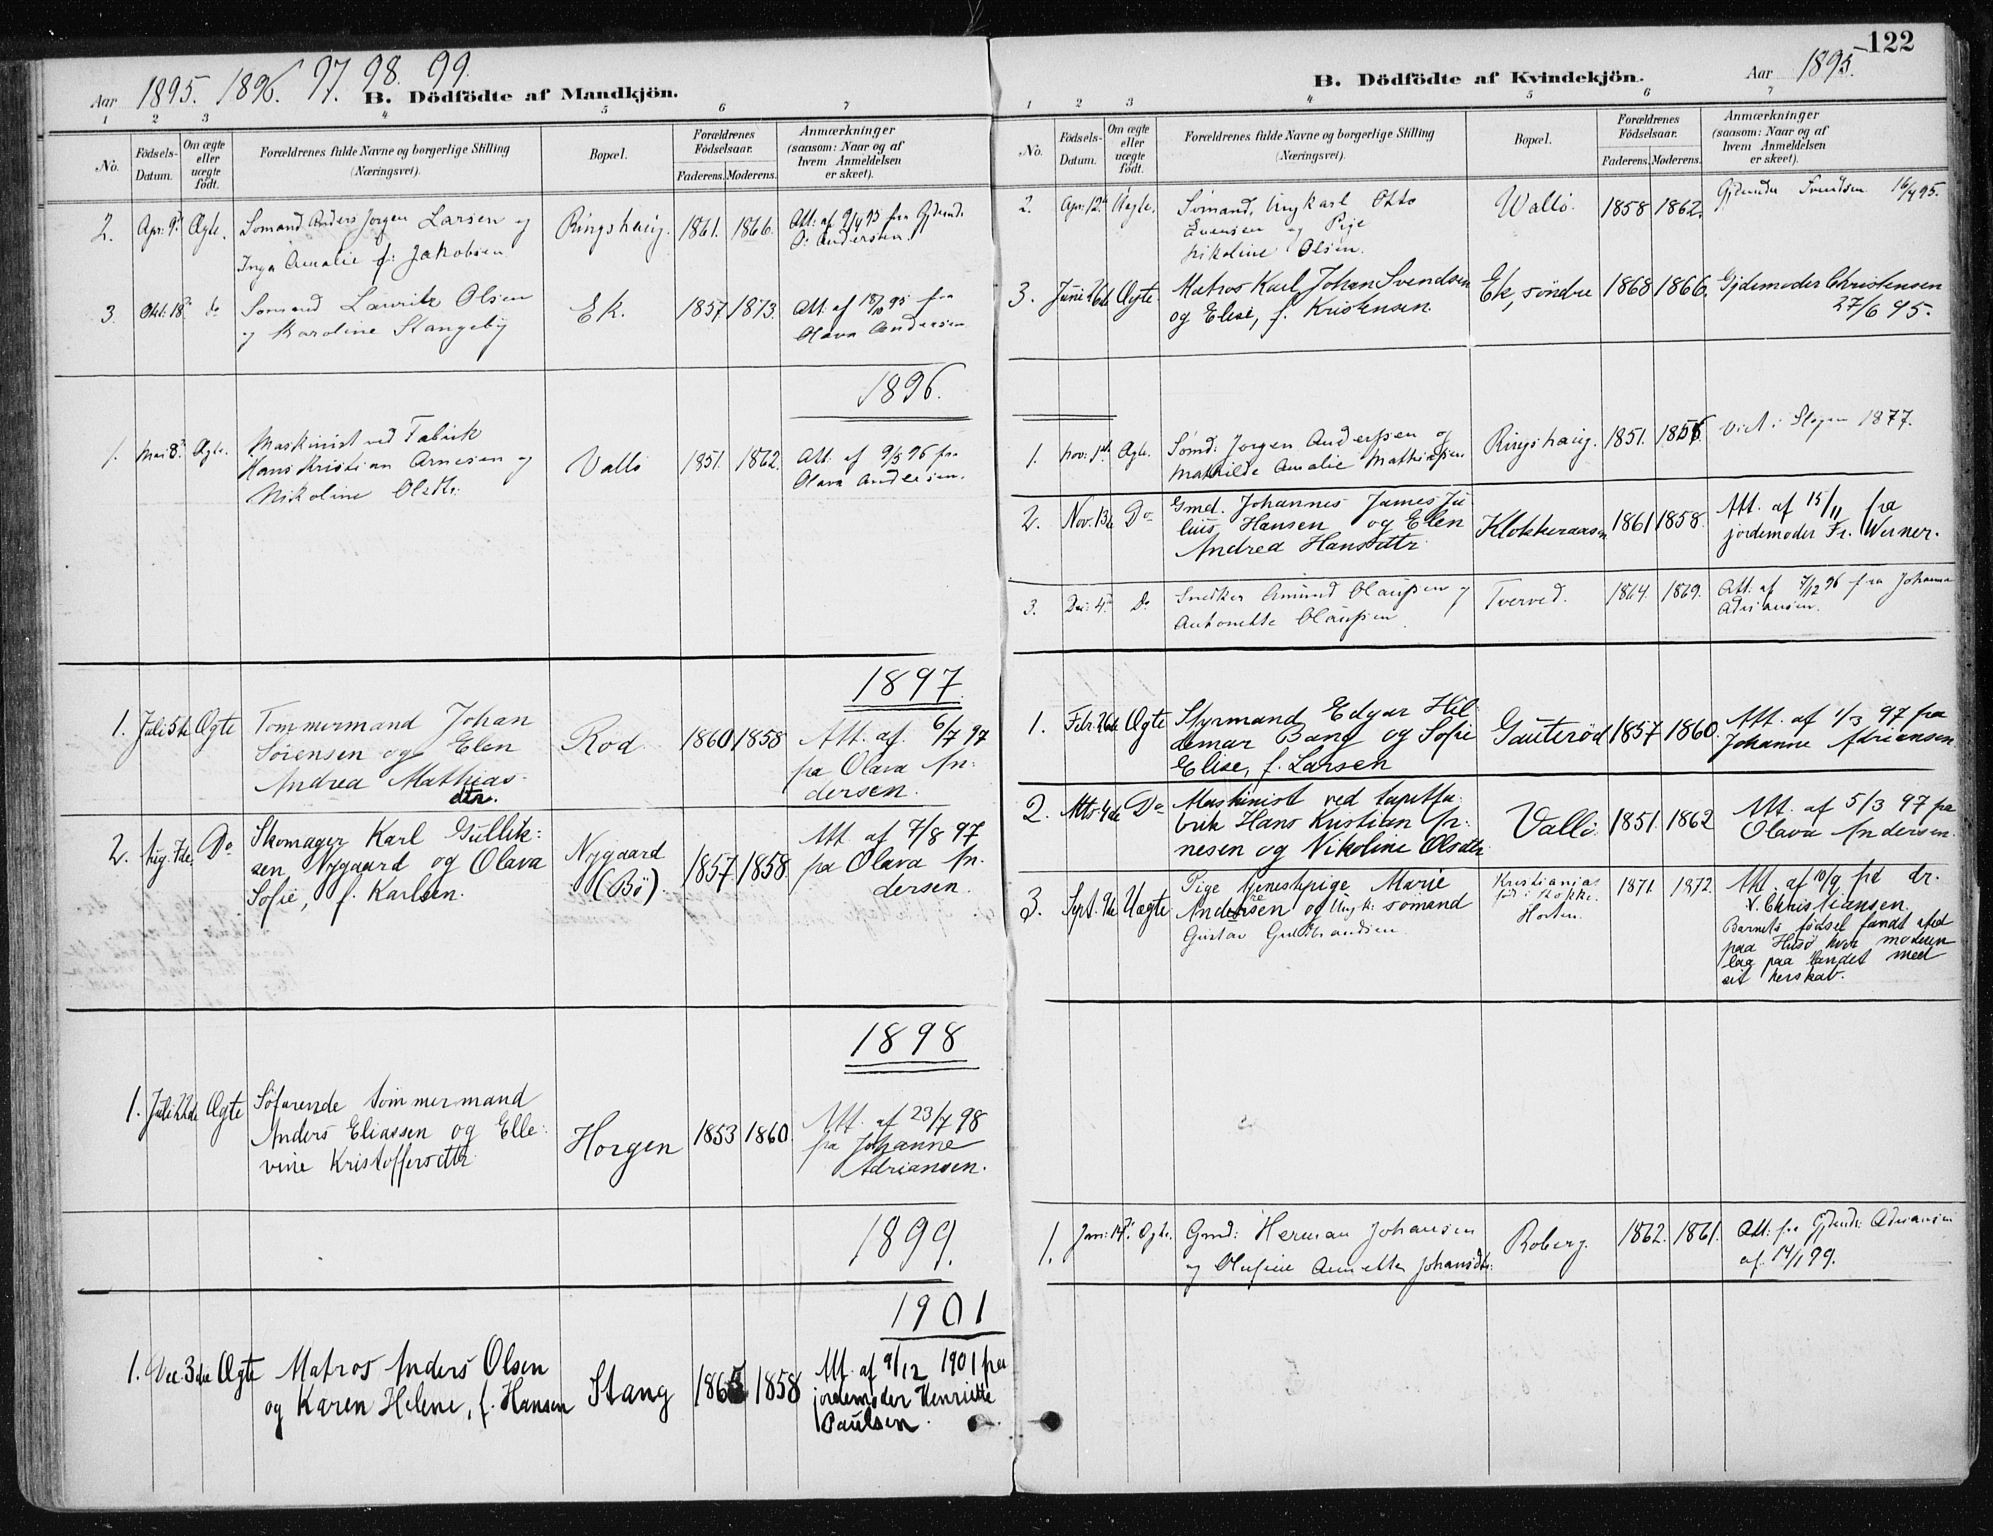 Aar 1895. 1896. 97. 98. 99.
B. Dödfödte af Mandkjön.
1 2 3 4 5 6 7
No.
Födsels-Datum.
Om ægte eller uægte födt.
Forældrenes fulde Navne og borgerlige Stilling
(Næringsvei).
Bopæl.
Forældrenes Födselsaar.
Faderens. Moderens.
Anmærkninger
(saasom: Naar og af
hvem Anmeldelsen
er skeet).
2. Apr. 9. Ægte. Sømand Anders Jørgen Larsen og Ringshaug. 1861. 1866. Att. af 9/4 95 fra Gjdmd.
Inga Amalie f. Jakobsen Andersen.
3. Okt. 18 do Sømand Lauritz Olsen Ek. 1857 1873. Att. af 18/10 95 fra
og Karoline Stangeby Olava Andersen
1896.
1. Mai 8. Ægte. Maskinist ved Fabrik
Hans Kristian Arnesen og Vallø 1851. 1862. Att. af 9/5 96 fra
Nikoline Olsdtr. Olava Andersen.
1897
1. Juli 5te Ægte Tømmermand Johan
Sørensen og Elen Rød 1860 1858 Att. af 6/7 97
Andrea Mathias- fra Olava An-
dtr. dersen.
2. Aug. 7de Do Skomager Karl Gullik-
sen Nygaard og Olava Nygaard 1857 1858 Att. af 7/8 97
Sofie, f. Karlsen. (Bø) fra Olava An-
dersen.
1898
1. Juli 22de Ægte Søfarende tømmermand
Anders Eliassen og Elle- Horgen 1853 1860. Att. af 23/7 98
vine Kristoffersdtr. fra Johanne
Adriansen.
1899.
1901
1. Dec. 3die Ægte Matros Anders Olsen Stang 1865 1858 Att. af 9/12 1901 fra
og Karen Helene, f. Hansen jordemoder Henriette
Paulsen.
122
B. Dödfödte af Kvindekjön.
Aar 1895.
1 2 3 4 5 6 7
No.
Födsels-Datum.
Om ægte eller uægte födt.
Forældrenes fulde Navne og borgerlige Stilling
(Næringsvei).
Bopæl.
Forældrenes Födselsaar.
Faderens. Moderens.
Anmærkninger
(saasom: Naar og af
hvem Anmeldelsen
er skeet).
2. Apr. 12. Uægte. Sømand, Ungkarl Otto Vallø 1858 1862. Svendsen 16/4 95.
Evensen og Pige
Nikoline Olsen.
3. Juni 26de Ægte Matros Karl Johan Svendsen Ek, søndre 1868 1866. Gjdemoder Christensen
og Elise, f. Kristensen. 27/6 95.
1. Nov. 1ste Ægte. Sømd. Jørgen Anderssen og Ringshaug. 1851. 1856. Viet i Slagen 1877.
Mathilde Amalie Mathiassen
2. Nov. 13de Do Gmd. Johannes James Ju-
lius Hansen og Elen Klokkeraasen 1861 1858. Att. af 15/11 fra
Andrea Hansdtr. jordemoder Fr. Werner.
3. Dec. 4. Do Snedker Amund Olaussen og Tverved. 1864. 1869. Att. af 7/12 96 fra Johanne
Antonette Olaussen. Adriansen.
1. Febr. 26de Ægte Styrmand Edgar Hil-
demar Bang og Sofie Gauterød 1857 1860. Att. af 1/3 97 fra
Elise, f. Larsen Johanne Adriansen
2. Mts 4de Do Maskinist ved tapetfa-
brik Hans Kristian Ar- Vallø. 1851. 1862 Att. af 5/3 97 fra
nesen og Nikoline Olsdtr. Olava Andersen.
3. Sept. 9de Uægte Pige tjenestepige Marie Kristiania 1871. 1872. Att. af 10/9 fra dr.
Andersen og Ungk. sømand Horten. Christiansen.
Gustav Gulbrandsen Barnets fødsel fandt sted
paa Husø hvor moderen
laa paa landet med
sit herskab.
1. Jan. 14. Ægte. Gmd: Herman Johansen Roberg. 1862. 1861. Att. fra Gjdmdr. Adriansen
og Olufine Annette Johansdtr. af 14/1 99.